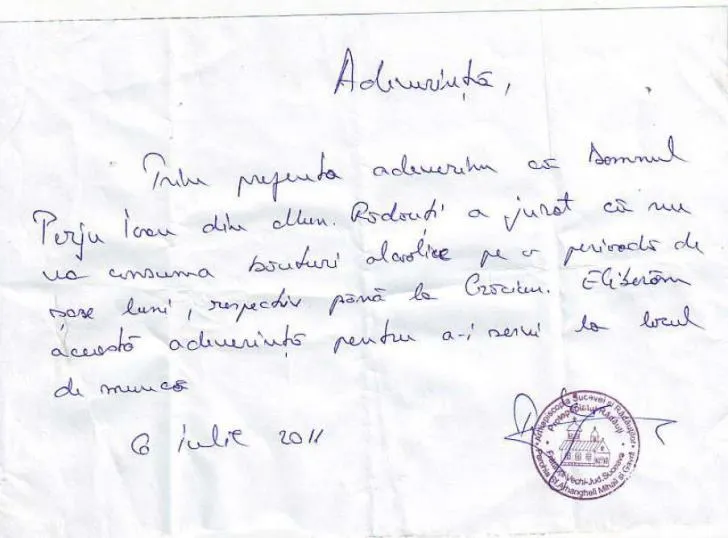 Adeverință,
Prin prezenta adeverim că domnul
Perju Ioan din Mun. Rădăuți a jurat că nu
va consuma băuturi alcolice pe o perioadă de
șase luni, respectiv până la Crăciun. Eliberăm
această adeverință pentru a-i servi la locul
de muncă
6 iulie 2011
Arhiepiscopia Sucevei și Rădăuților
Protopopiatul Rădăuți
Vechi-Jud. Suceava
Parohia Sf. Arhangheli Mihail și Gavril